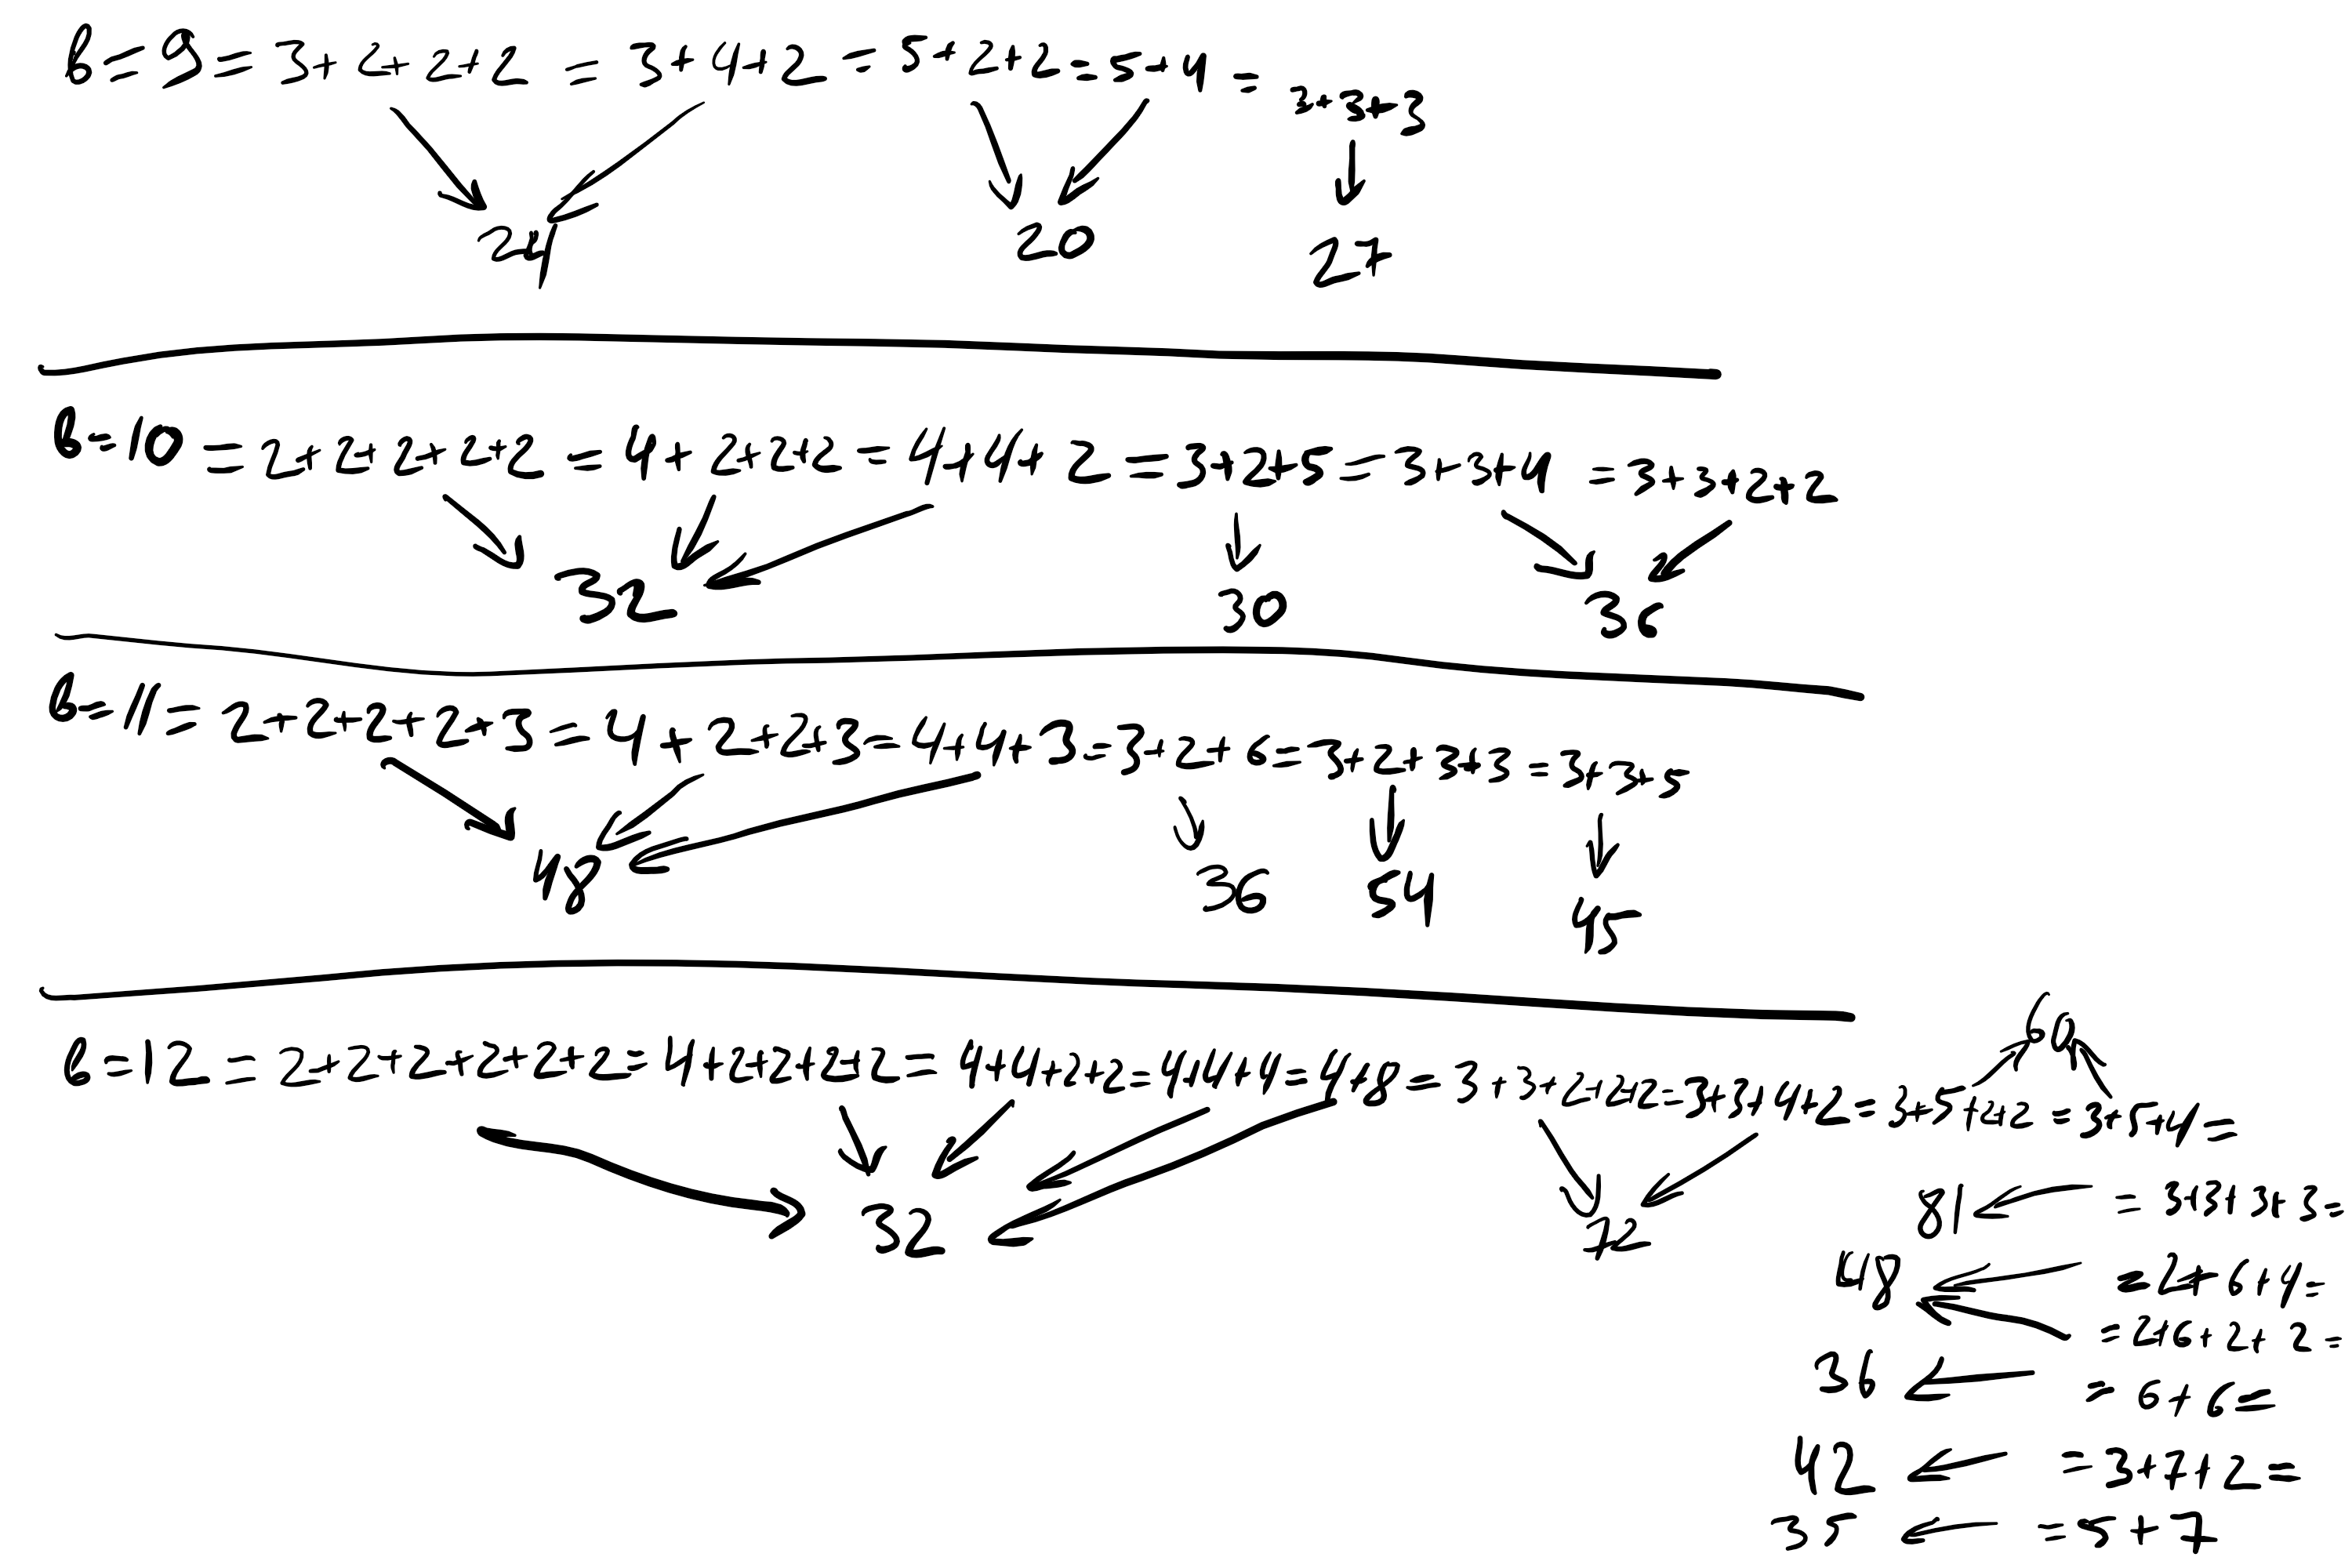 b=9=3+2+2+2=3+4+2=5+2+2=5+4=3+3+3
24 20 27
b=10=2+2+2+2+2=4+2+2+2=4+4+2=3+2+5=3+3+4=3+3+2+2
32 30 36
b=11=2+2+2+2+3=4+2+2+3=4+4+3=3+2+6=3+2+3+3=3+3+5
48 36 54 45
60
b=12=2+2+2+2+2+2=4+2+2+2+2=4+4+2+2=4+4+4=4+8=3+3+2+2+2=3+3+4+2=3+5+2+2=3+5+4=
32 72
81 =3+3+3+3=
48 =2+6+4=
=2+6+2+2=
36 =6+6=
42 =3+7+2=
35 =5+7